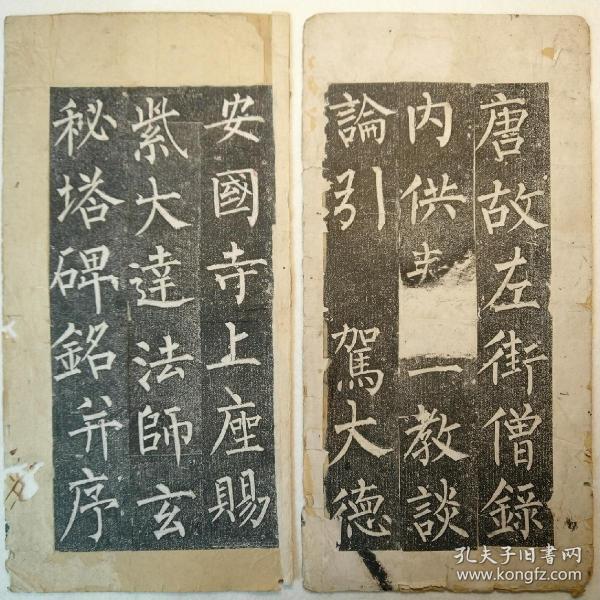 唐故左街僧錄
內供
一教談
論引 駕大德
安國寺上座賜
紫大達法師玄
秘塔碑銘并序
孔夫子旧书网
www.kongfz.com